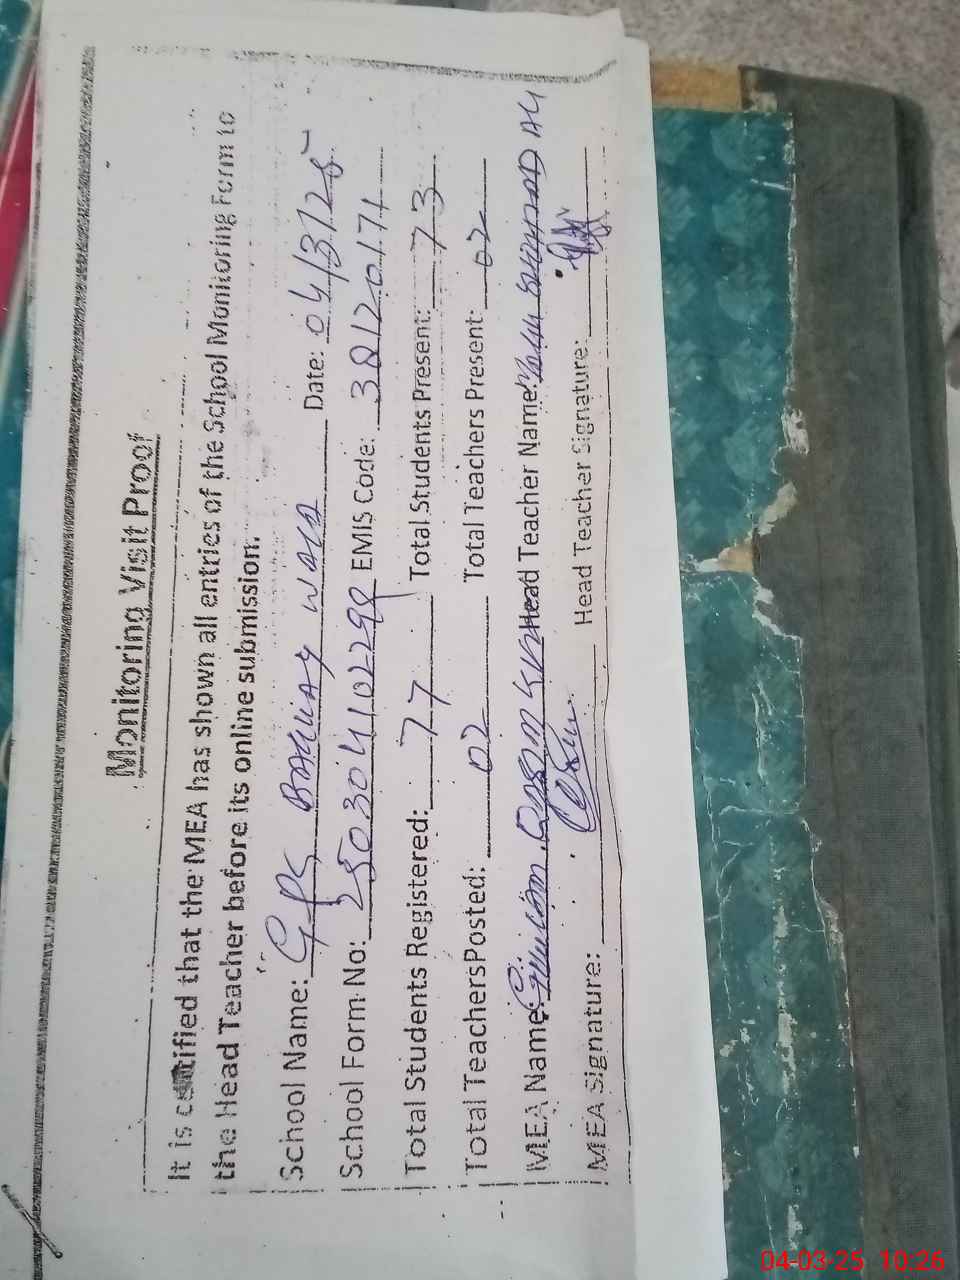 Monitoring Visit Proof
It is certified that the MEA has shown all entries of the School Monitoring Form to
the Head Teacher before its online submission.
School Name: GPS WALA Date: 04/3/25
School Form No: EMIS Code:
Total Students Registered: 77 Total Students Present: 73
Total Teachers Posted: 02 Total Teachers Present: 02
MEA Name: Head Teacher Name:
MEA Signature: Head Teacher Signature:
04-03-25 10:26